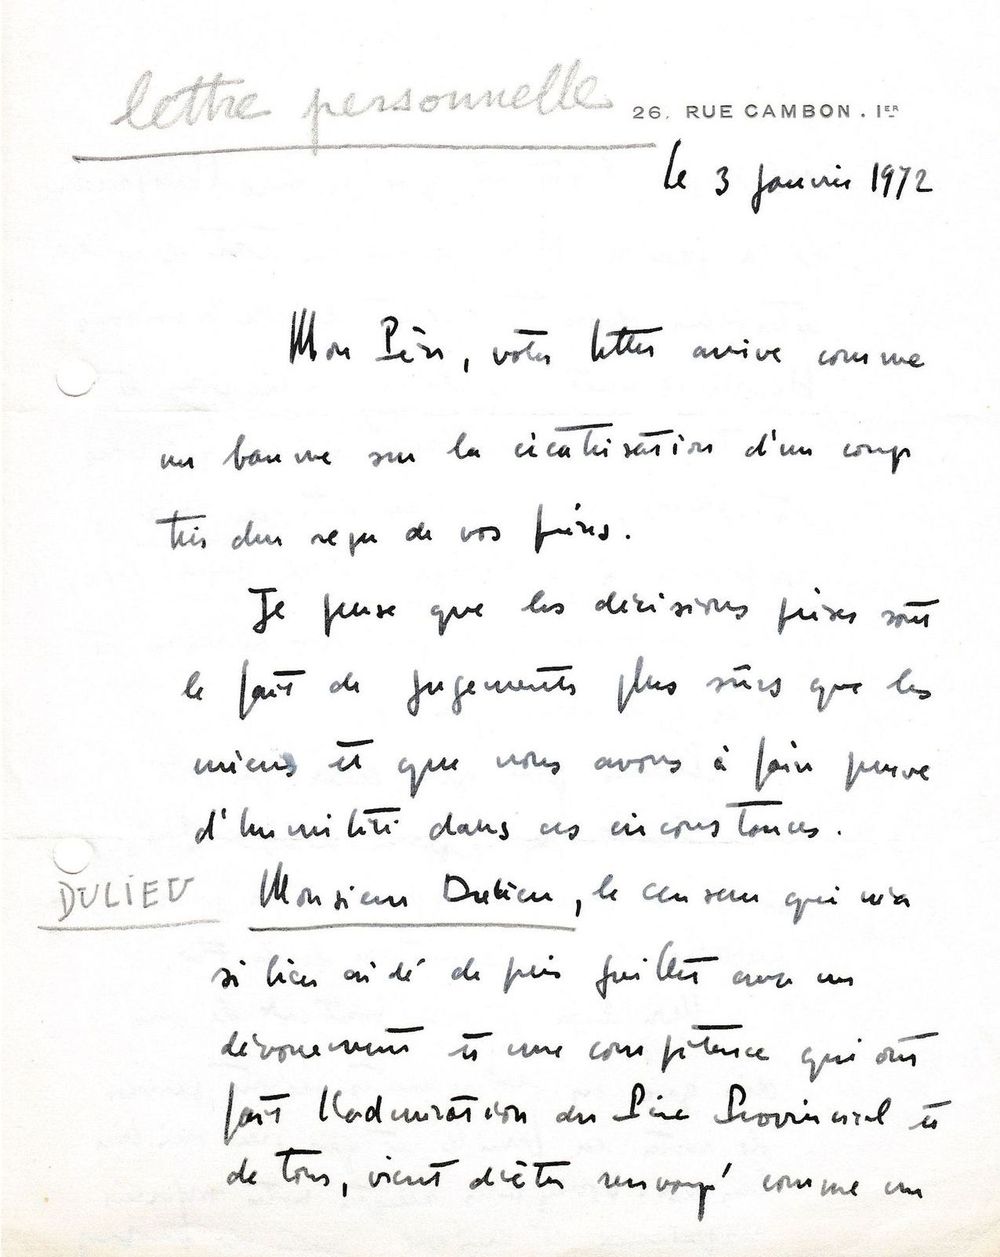 lettre personnelle
26, RUE CAMBON . IER
le 3 janvier 1972
Mon Père, votre lettre arrive comme
un baume sur la cicatrisation d'un coup
très dur reçu de vos frères.
Je pense que les décisions prises sont
le fait de jugements plus sûrs que les
miens et que nous avons à faire preuve
d'humilité dans ces circonstances.
DULIEU
Monsieur Dulieu, le censeur qui m'a
si bien aidé depuis juillet avec un
dévouement et une compétence qui ont
fait l'admiration du Père Provincial et
de tous, vient d'être renvoyé comme un